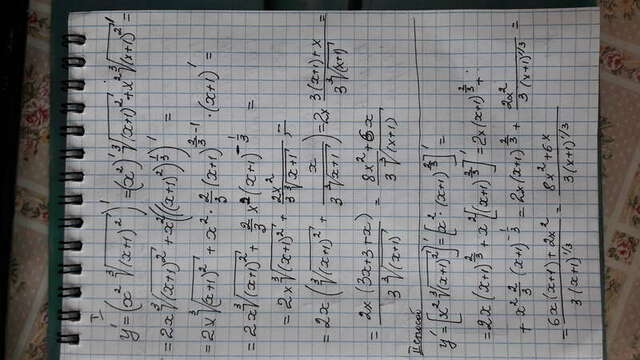 I
y' = (x² ∛(x+1)²)' = (x²)' ∛(x+1)² + x² ∛(x+1)²' =
= 2x ∛(x+1)² + x² (((x+1)²)^(1/3))' =
= 2x ∛(x+1)² + x² · 2/3 (x+1)^(2/3 - 1) · (x+1)' =
= 2x ∛(x+1)² + 2/3 x² (x+1)^(-1/3) =
= 2x ∛(x+1)² + 2x²/(3 ∛(x+1)) =
= 2x (∛(x+1)² + x/(3 ∛(x+1))) = 2x (3(x+1)+x)/(3 ∛(x+1)) =
= 2x (3x+3+x)/(3 ∛(x+1)) = (8x²+6x)/(3 ∛(x+1))
II способ
y' = [x² ∛(x+1)²]' = [x² · (x+1)^(2/3)]' =
= 2x (x+1)^(2/3) + x² [(x+1)^(2/3)]' = 2x (x+1)^(2/3) +
+ x² 2/3 (x+1)^(-1/3) = 2x (x+1)^(2/3) + 2x²/(3 (x+1)^(1/3)) =
= (6x(x+1)+2x²)/(3(x+1)^(1/3)) = (8x²+6x)/(3(x+1)^(1/3))